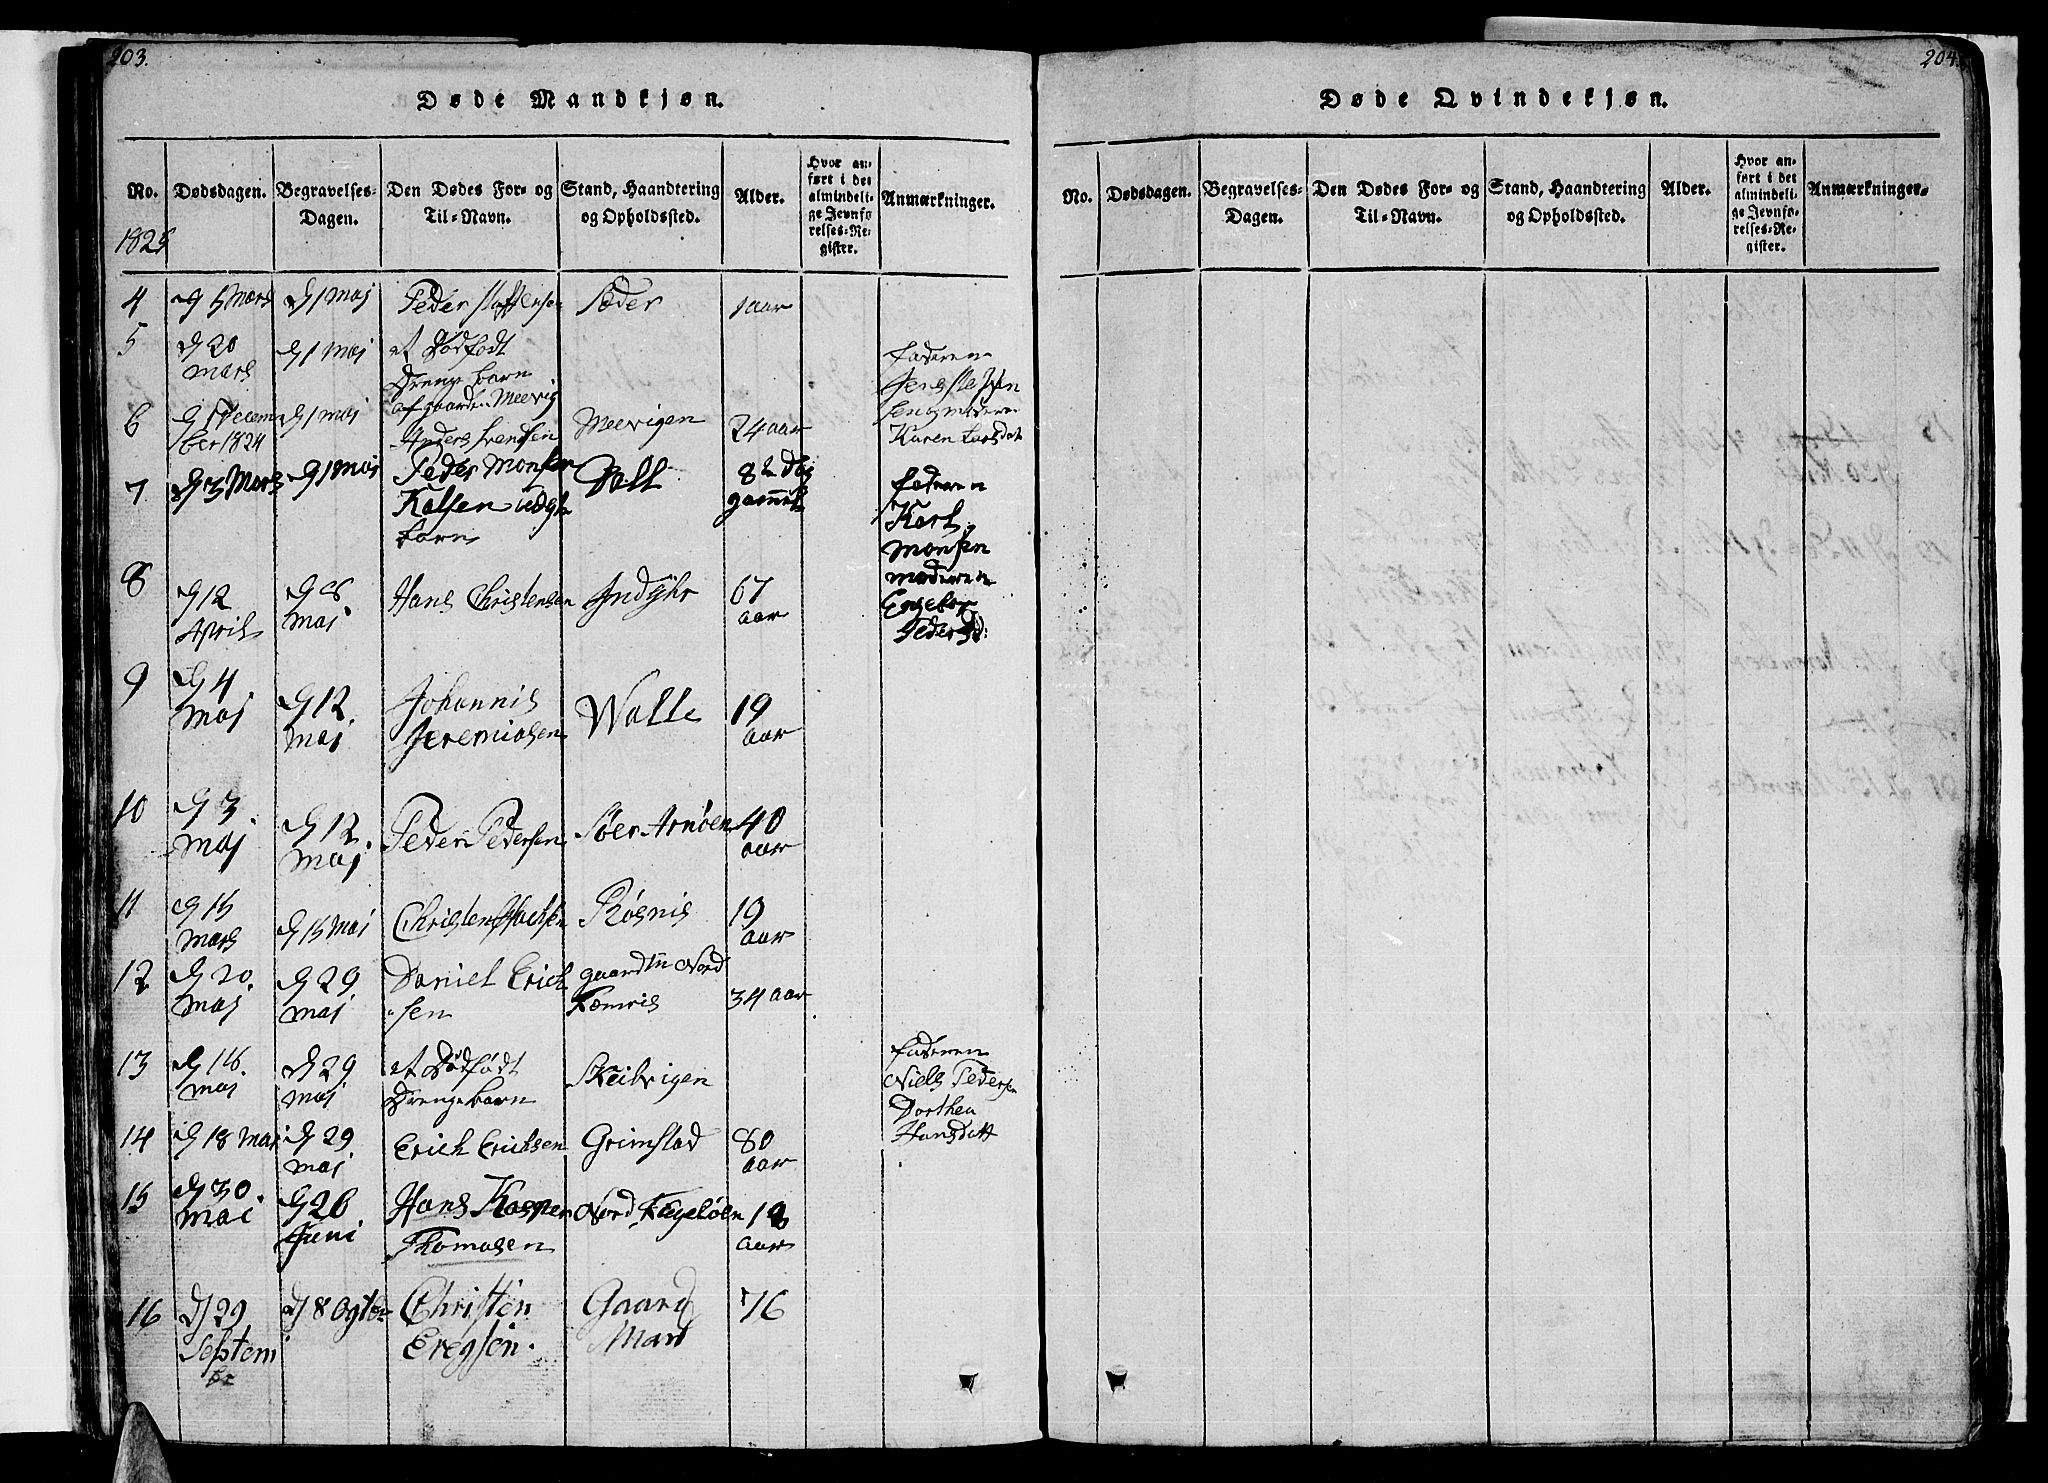 203.
Døde Mandkjøn.
No. Dødsdagen. Begravelses-Dagen. Den Dødes For- og Til-Navn. Stand, Haandtering og Opholdssted. Alder. Hvor anført i det almindelige Jevnførelses-Register. Anmærkninger.
1825
4 d 5 Mars d 1 Maj Peder Soder 1 aar
5 d 20 mars d 1 maj et Dødfødt Drenge barn af gaarden Meevig faderen Jens moderen Karen Larsdat
6 d 1 December 1824 d 1 maj Anders Svendsen Meevigen 24 aar
7 d 3 Mars d 1 Maj Peder Monsen Kalsen barn Valt 8te Dag gammel faderen Karl Monsen moderen Engebor Pedersd:
8 d 12 April d 8 maj Hans Christensen Indyhr 67 aar
9 d 4 maj d 12 maj Johannis Jeremiasen Walle 19 aar
10 d 3 maj d 12. maj Peder Pedersen Søer Arnøen 40 aar
11 d 15 Mars d 15 Maj Christen Røsnis 19 aar
12 d 20. maj d 29 maj Daniel Erich sen gaardm Nord 34 aar
13 d 16. maj d 29 maj et Dødfødt Drengebarn Skeivigen faderen Niels Pedersen Dorthea Hansdatt
14 d 18 mai d 29 maj Erich Erichsen Grimstad 80 aar
15 d 30. mai d 26 Juni Hans Kasper Thomasen Nord aar
16 d 29 Septem br d 8 Ogtbr Christen Eregsen. Gaard Mand 76
204.
Døde Qvindekjøn.
No. Dødsdagen. Begravelses-Dagen. Den Dødes For- og Til-Navn. Stand, Haandtering og Opholdssted. Alder. Hvor anført i det almindelige Jevnførelses-Register. Anmærkninger.